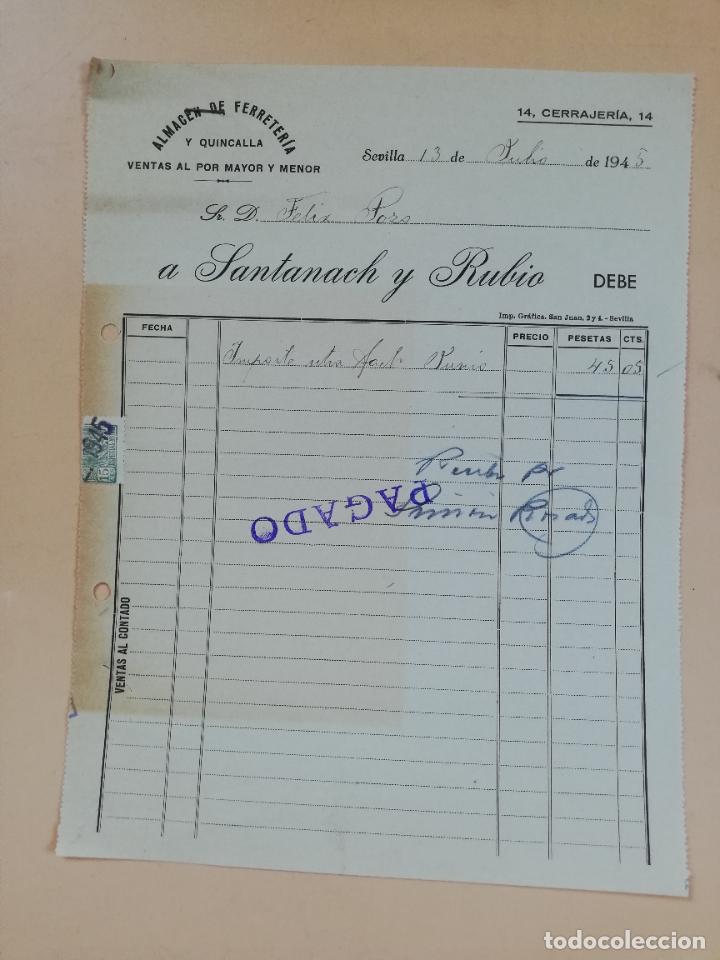 ALMACEN DE FERRETERÍA
Y QUINCALLA
VENTAS AL POR MAYOR Y MENOR
14, CERRAJERÍA, 14
Sevilla 13 de Julio de 1945
Sr. D. Felix Pozo
a Santanach y Rubio DEBE
Imp. Gráfica. San Juan, 2 y 4. - Sevilla
FECHA PRECIO PESETAS CTS.
Importe Junio 45 05
1945
15
PAGADO
VENTAS AL CONTADO
todocoleccion
todocoleccion.net